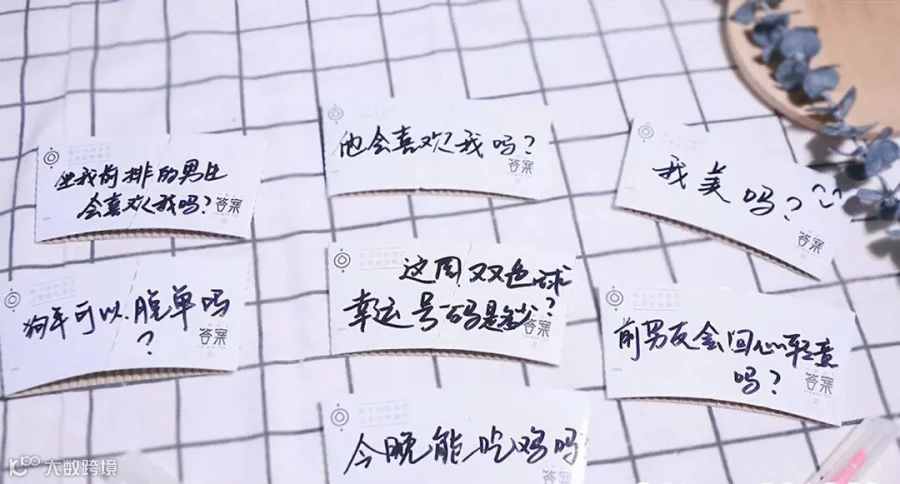 坐我前排的男生
会喜欢我吗?
答案
他会喜欢我吗?
答案
我美吗?
答案
狗年可以脱单吗
?
答案
这周双色球
幸运号码是多少?
答案
前男友会回心转意
吗?
答案
今晚能吃鸡吗
答案
大数跨境